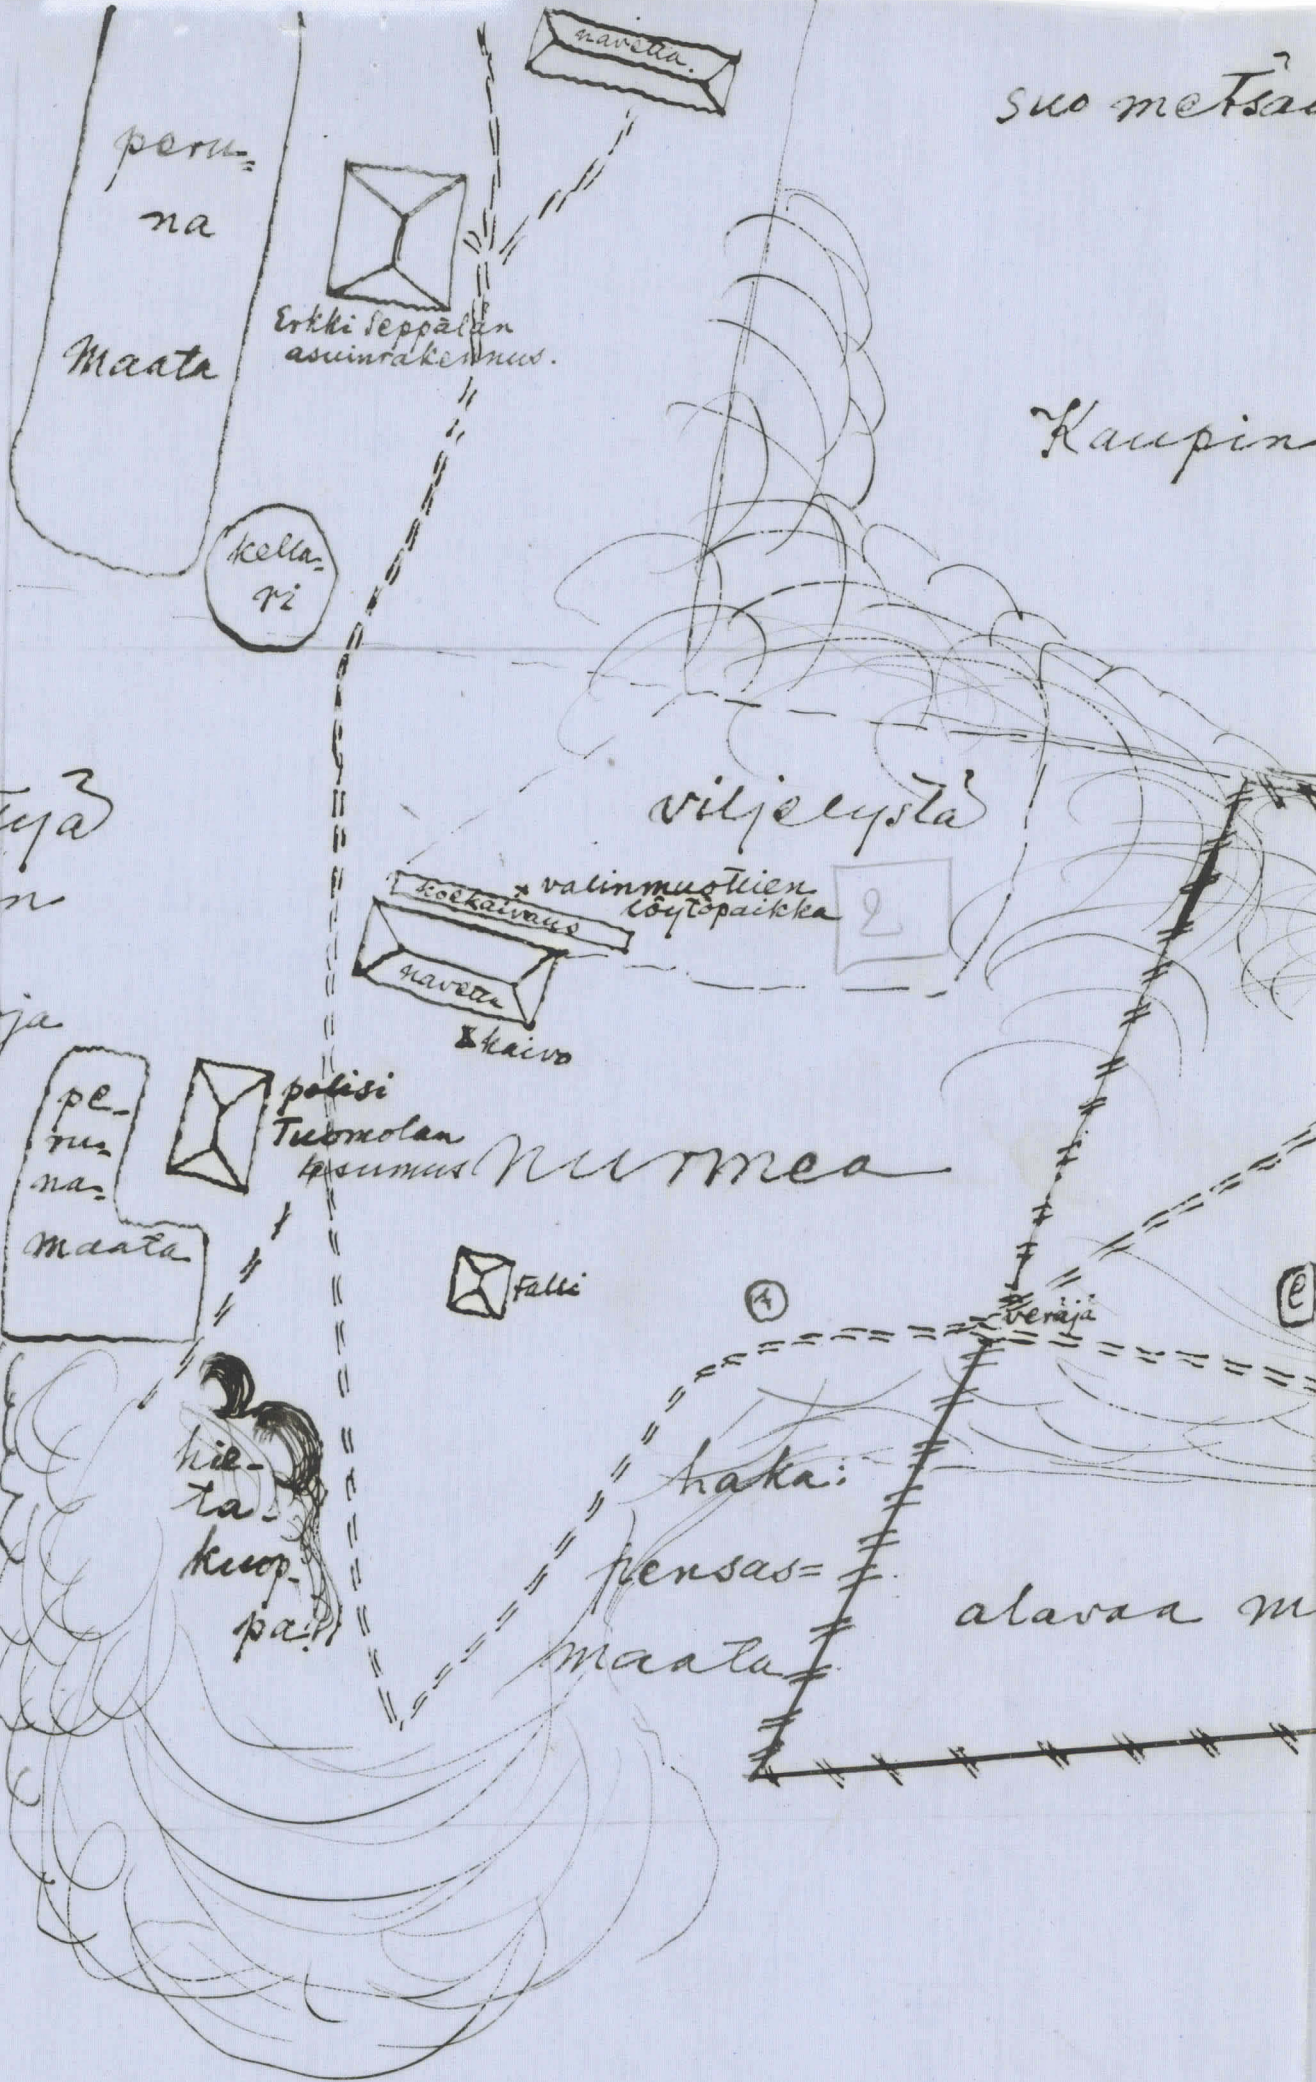 navetta.
suo metsää
peru=
na
maata
Erkki Seppälän
asuinrakennus.
Kaupin
kella-
ri
viljelystä
koekaivaus
x valinmuottien
löytöpaikka
2
navetta
x kaivo
ja
pe-
ru=
na=
maata
polisi
Tuomolan
asumus
nurmea
talli
veräjä
hie-
ta-
kuop-
pa.
haka:
pensas=
maata
alavaa m